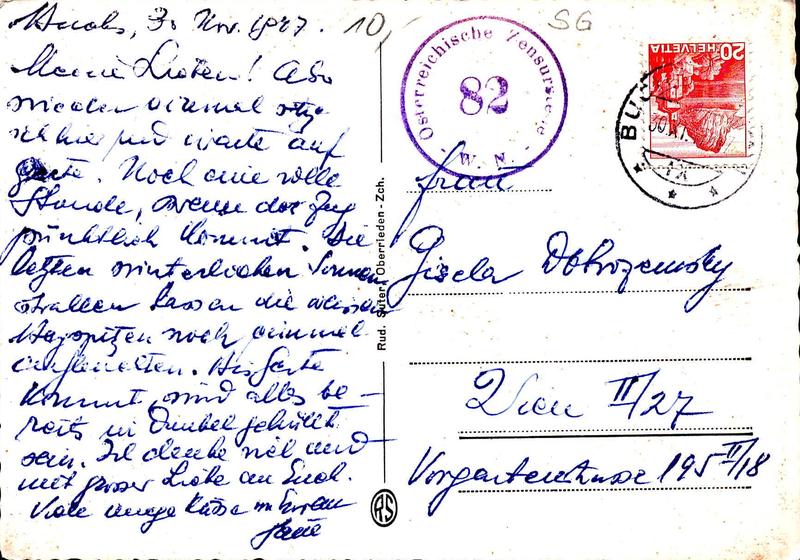 Buchs, 30. Nov. 1947.
Meine Lieben! Also
wieder einmal sitze
ich hier und warte auf
Gerte. Noch eine volle
Stunde, wenn der Zug
pünktlich kommt. Die
letzten winterlichen Sonnen
strallen lassen die weissen
noch einmal
aufleuchten. Bis Gerte
kommt, wird alles be-
reits in Dunkel gehüllt
sein. Ich denke viel und
mit grosser Liebe an Euch.
Viele innige Küsse von
10,-
SG
Österreichische Zensurstelle
82
W. N.
HELVETIA
20
BUC
30.XI.
Frau
Gisela Dobrozemsky
Wien II/27
Vorgartenstrasse 195 II/18
Rud. Suter, Oberrieden-Zch.
RS